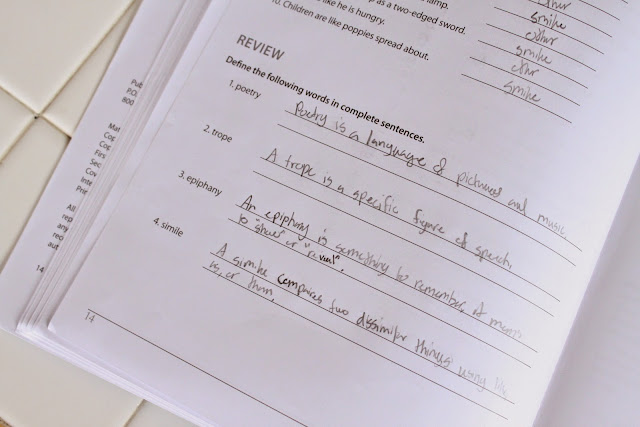 lamp.
p as a two-edged sword.
like he is hungry.
10. Children are like poppies spread about.
other
simile
other
simile
other
simile
REVIEW
Define the following words in complete sentences.
1. poetry
Poetry is a language of pictures and music
2. trope
A trope is a specific figure of speech.
3. epiphany
An epiphany is something to remember, it means
to "show" or "reveal".
4. simile
A simile compares two dissimilar things using like,
as, or than.
14
Pub
P.O.
800
Mat
Cop
Firs
Sec
Cov
Inte
Prie
All
rep
any
red
aut
14